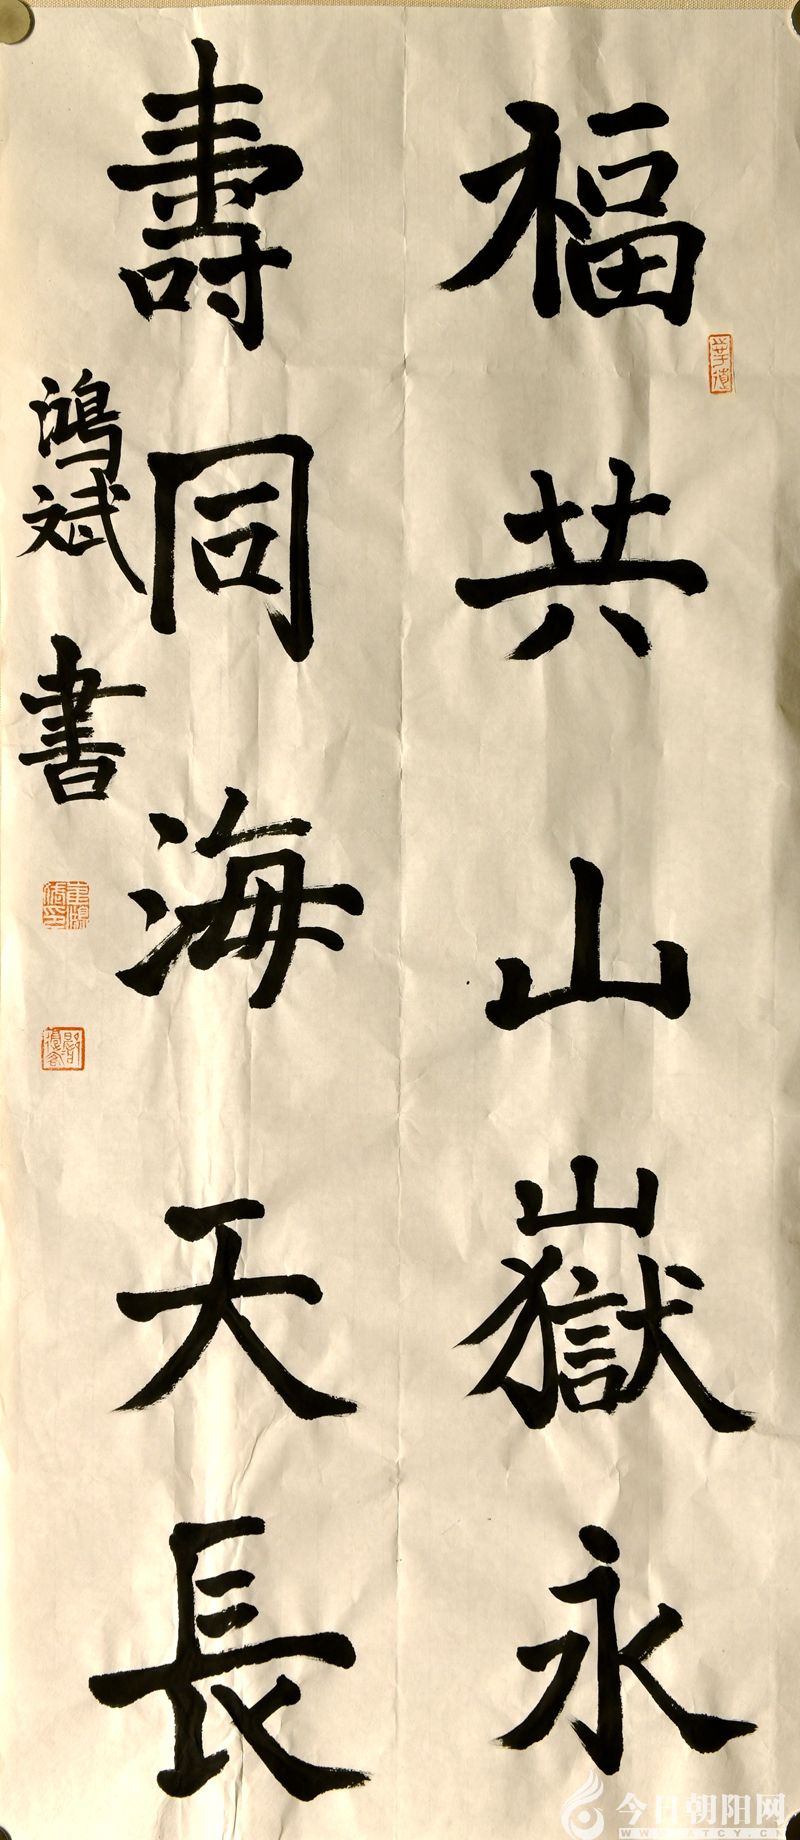 福共山嶽永
壽同海天長
鴻斌書
今日朝阳网
WWW.ATCY.CN